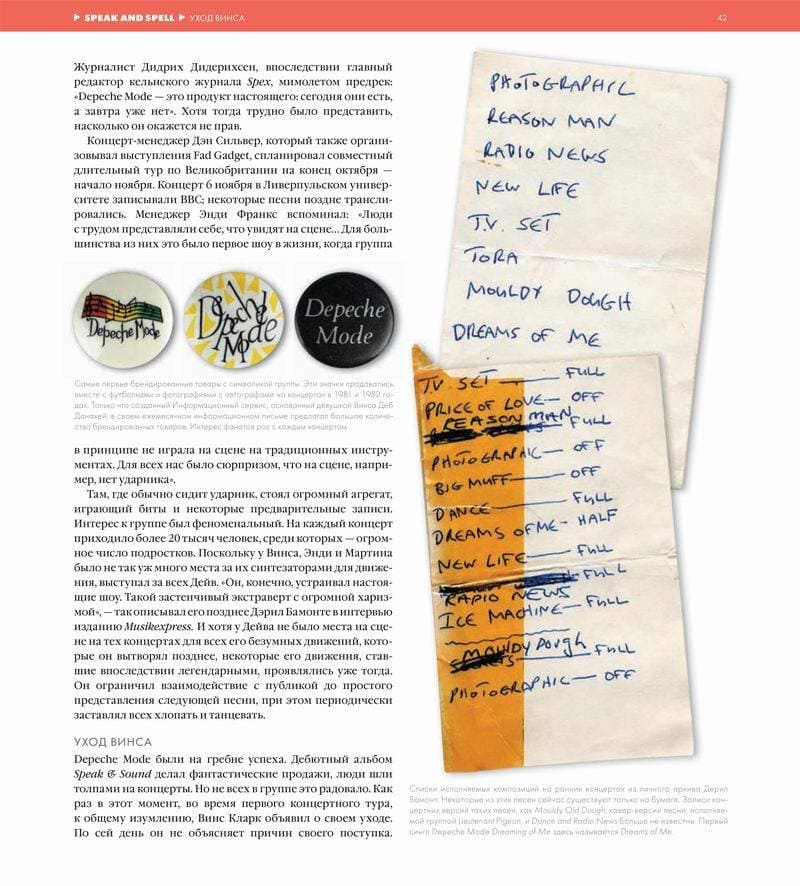 ▶ SPEAK AND SPELL ▶ УХОД ВИНСА
42
Журналист Дидрих Дидерихсен, впоследствии главный
редактор кельнского журнала Spex, мимолетом предрек:
«Depeche Mode — это продукт настоящего: сегодня они есть,
а завтра уже нет». Хотя тогда трудно было представить,
насколько он окажется не прав.
Концерт-менеджер Дэн Сильвер, который также органи-
зовывал выступления Fad Gadget, спланировал совместный
длительный тур по Великобритании на конец октября —
начало ноября. Концерт 6 ноября в Ливерпульском универ-
ситете записывали BBC; некоторые песни позднее трансли-
ровались. Менеджер Энди Франкс вспоминал: «Люди
с трудом представляли себе, что увидят на сцене... Для боль-
шинства из них это было первое шоу в жизни, когда группа
Depeche Mode
Depeche
Mode
Depeche
Mode
Самые первые брендированные товары с символикой группы. Эти значки продавались
вместе с футболками и фотографиями с автографами на концертах в 1981 и 1982 го-
дах. Только что созданный Информационный сервис, основанный девушкой Винса Деб
Данахей, в своем ежемесячном информационном письме предлагал большое количе-
ство брендированных товаров. Интерес фанатов рос с каждым концертом
в принципе не играла на сцене на традиционных инстру-
ментах. Для всех нас было сюрпризом, что на сцене, напри-
мер, нет ударника».
Там, где обычно сидит ударник, стоял огромный агрегат,
играющий биты и некоторые предварительные записи.
Интерес к группе был феноменальный. На каждый концерт
приходило более 20 тысяч человек, среди которых — огром-
ное число подростков. Поскольку у Винса, Энди и Мартина
было не так уж много места за их синтезаторами для движе-
ния, выступал за всех Дейв. «Он, конечно, устраивал настоя-
щие шоу. Такой застенчивый экстраверт с огромной хариз-
мой», — так описывал его позднее Дэрил Бамонте в интервью
изданию Musikexpress. И хотя у Дейва не было места на сце-
не на тех концертах для всех его безумных движений, кото-
рые он вытворял позднее, некоторые его движения, став-
шие впоследствии легендарными, проявлялись уже тогда.
Он ограничил взаимодействие с публикой до простого
представления следующей песни, при этом периодически
заставлял всех хлопать и танцевать.
УХОД ВИНСА
Depeche Mode были на гребне успеха. Дебютный альбом
Speak & Sound делал фантастические продажи, люди шли
толпами на концерты. Но не всех в группе это радовало. Как
раз в этот момент, во время первого концертного тура,
к общему изумлению, Винс Кларк объявил о своем уходе.
По сей день он не объясняет причин своего поступка.
PHOTOGRAPHIC
REASON MAN
RADIO NEWS
NEW LIFE
T.V. SET
TORA
MOULDY DOUGH
DREAMS OF ME
T.V. SET — FULL
PRICE OF LOVE — OFF
REASON MAN FULL
PHOTOGRAPHIC — OFF
BIG MUFF — OFF
DANCE — FULL
DREAMS OF ME — HALF
NEW LIFE — FULL
FULL
RADIO NEWS
ICE MACHINE — FULL
MOULDY DOUGH FULL
PHOTOGRAPHIC — OFF
Списки исполняемых композиций на ранних концертах из личного архива Дерил
Бамонт. Некоторые из этих песен сейчас существуют только на бумаге. Записи кон-
цертных версий таких песен, как Mouldy Old Dough, кавер-версии песни, исполняе-
мой группой Lieutenant Pigeon, и Dance and Radio News больше не известны. Первый
сингл Depeche Mode Dreaming of Me здесь называется Dreams of Me.